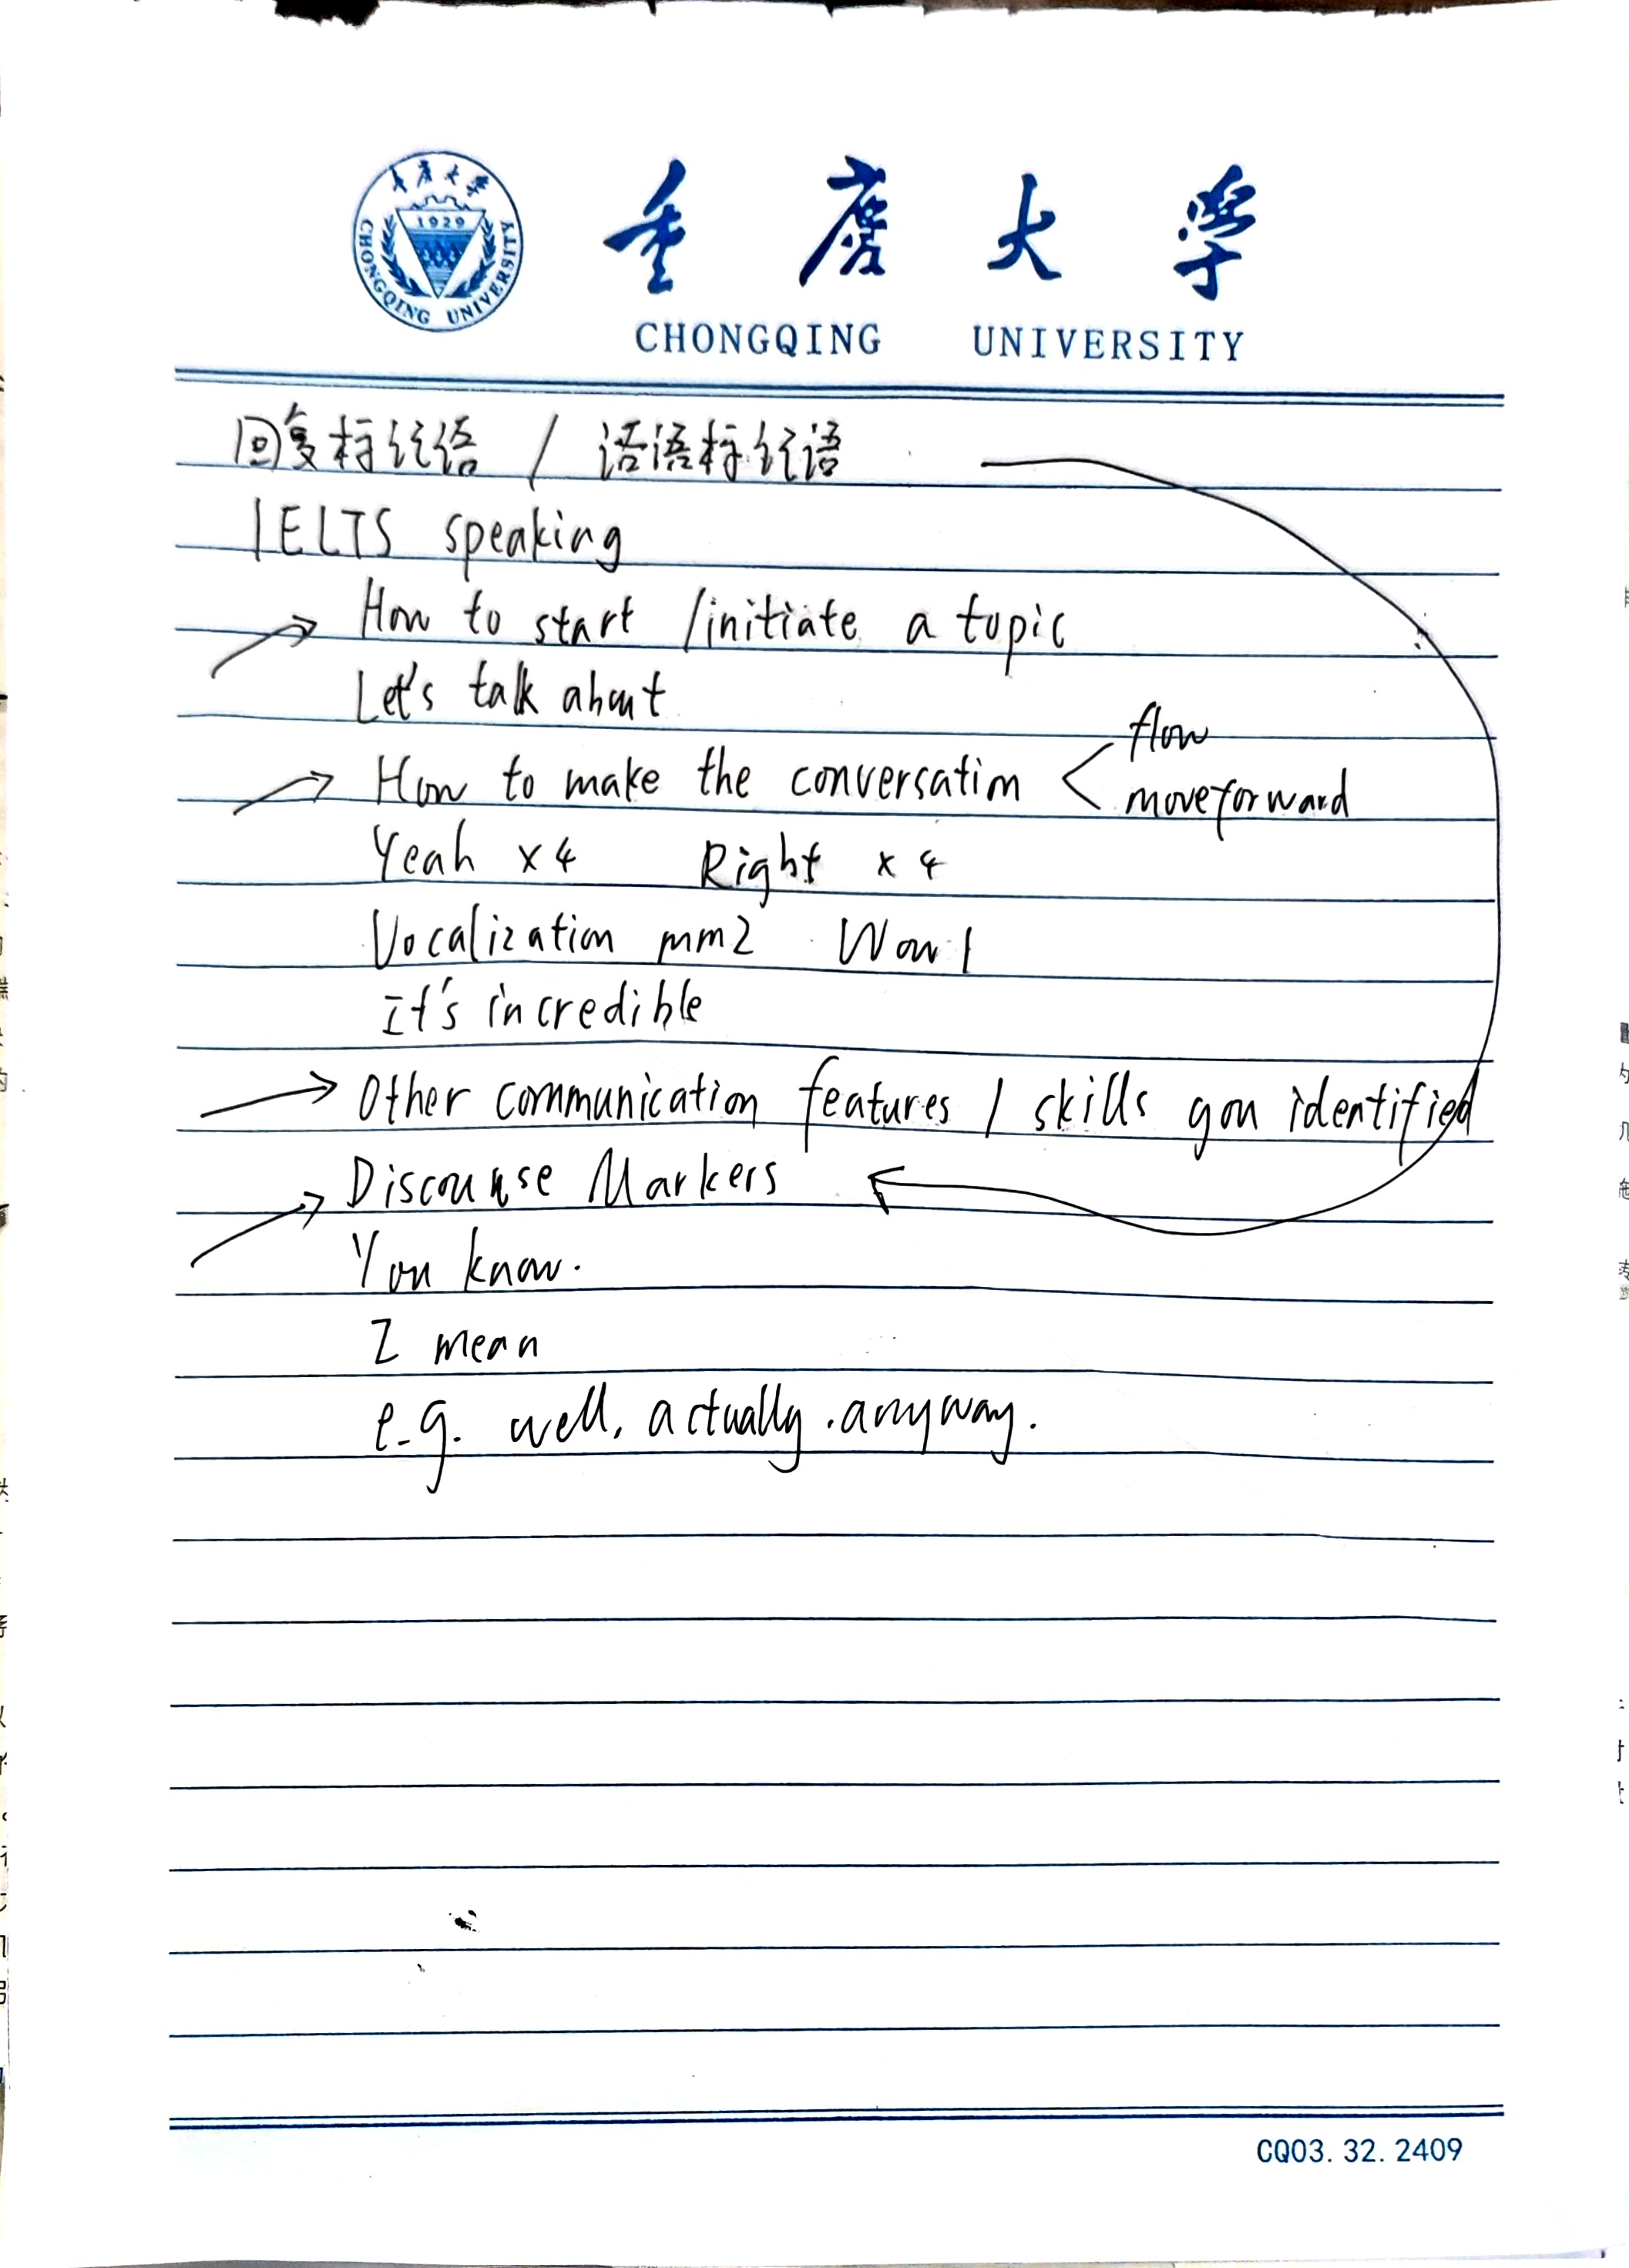 重庆大学
1929
CHONGQING UNIVERSITY
重庆大学
CHONGQING UNIVERSITY
回复标记语 / 话语标记语
IELTS speaking
How to start /initiate a topic
Let's talk about
How to make the conversation < flow
moveforward
Yeah x4 Right x4
Vocalization mm2 Wow 1
it's incredible
Other communication features / skills you identified
Discourse Markers
You know.
I mean
e.g. well, actually. anyway.
CQ03.32.2409